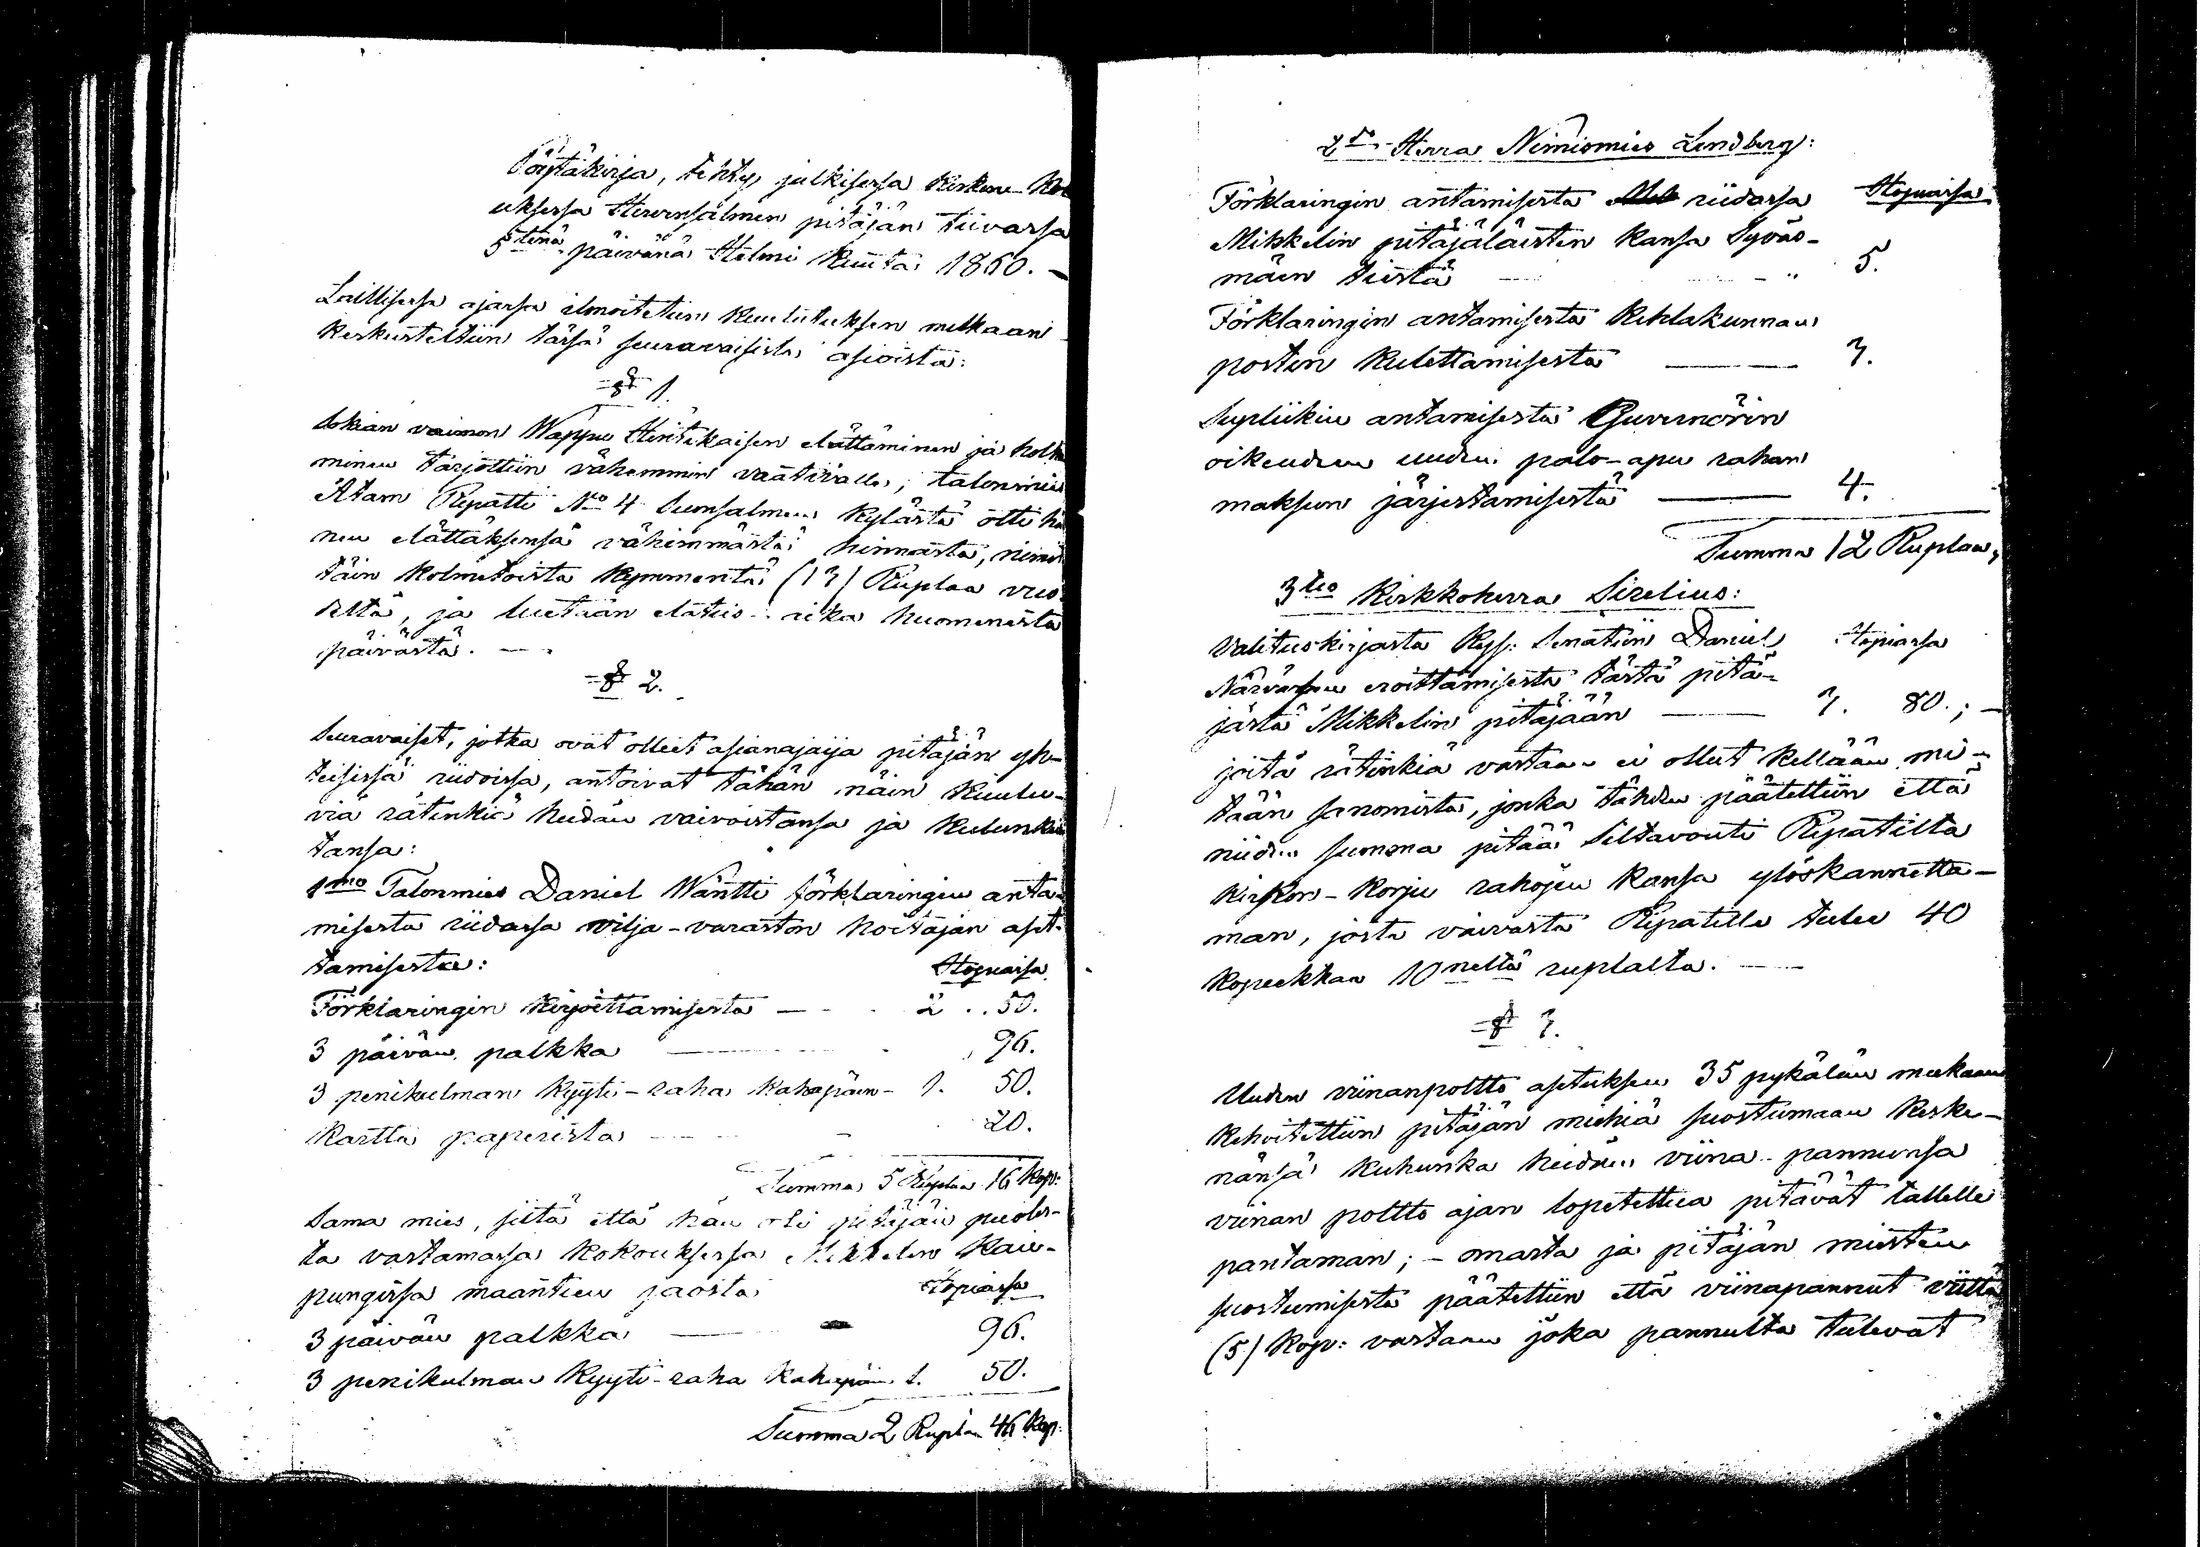 Pöytäkirja, tehty julkisessa kirkon-kok
uksessa Hirvensalmen pitäjän tuvassa
5tenä päivänä Helmi kuuta 1860. –
Laillisessa ajassa ilmoitetun kuulutuksen mukaan
keskusteltiin tässä seuravaisista asioista:
§ 1.
Sokian vaimon Wappu Hintikaisen elättäminen ja holho
minen tarjottiin vähemmin vaativalle; talonmies
Atam Repatti No 4 Suonsalmen kylästä otti hä
nen elättäksensä vähimmästä hinnasta, nimit
täin kolmetoista kymmentä (13) Ruplaa vuo
delta, ja luetaan elatus-aika huomenesta
päivästä. –
§ 2.
Seuravaiset, jotka ovat olleet asianajaija pitäjän yh-
teisissä riidoissa, antoivat tähän näin kuulu-
via rätinkiä heidän vaivoistansa ja kulunkis
tansa:
1mo Talonmies Daniel Wäntti förklaringin anta-
misesta riidassa vilja-varaston hoitajan aset-
tamisesta:
Hopiassa
Förklaringin kirjoittamisesta — 2 .. 50.
3 päivän palkka — 96.
3 penikulman kyyti-raha kahapäin - 1. 50.
Kartta paperista — 20.
Summa 5 Ruplaa 16 Kop:
Sama mies, siitä että hän oli pitäjän puoles-
ta vastamassa kokouksessa Mikkelin kau-
pungissa maantien jaosta
Hopiassa
3 päivän palkka — 96.
3 penikulman kyyti-raha kahapäin 1. 50.
Summa 2 Ruplaa 46 Kop:
2do Herra Nimismies Lindberg:
Förklaringin antamisesta riidassa Hopiassa
Mikkelin pitäjäläisten kansa Syväs-
mäen tiestä — " 5.
Förklaringin antamisesta kihlakunnan
postin kulettamisesta — 3.
Supliikin antamisesta Guvernörin
oikeuden uuden palo-apu rahan
maksun järjestamisestä — 4.
Summa 12 Ruplaa,
3tio Kirkkoherra Sirelius:
Valituskirjasta Keis: Senatiin Daniel Hopiassa
Närväsen eroittamisesta tästä pitä-
jästä Mikkelin pitäjään — 3. 80.; –
joita rätinkiä vastaan ei ollut kellään mi-
tään sanomista, jonka tähden päätettiin että
niiden summa pitää Siltavouti Repatilta
kirkon-korju rahojen kansa ylöskannetta-
man, josta vaivasta Repatille tulee 40
kopeekkaa 10neltä ruplalta. —
§ 3.
Uuden viinanpoltto asetuksen 35 pykälän mukaan
kehoitettiin pitäjän miehiä suostumaan keske-
nänsä kuhunka heidän viina-pannunsa
viinan poltto ajan lopetettua pitävät tallelle
pantaman; – omasta ja pitäjän miesten
suostumisesta päätettiin että viinapannut viittä
(5) Kop: vastaan joka pannulta tulevat